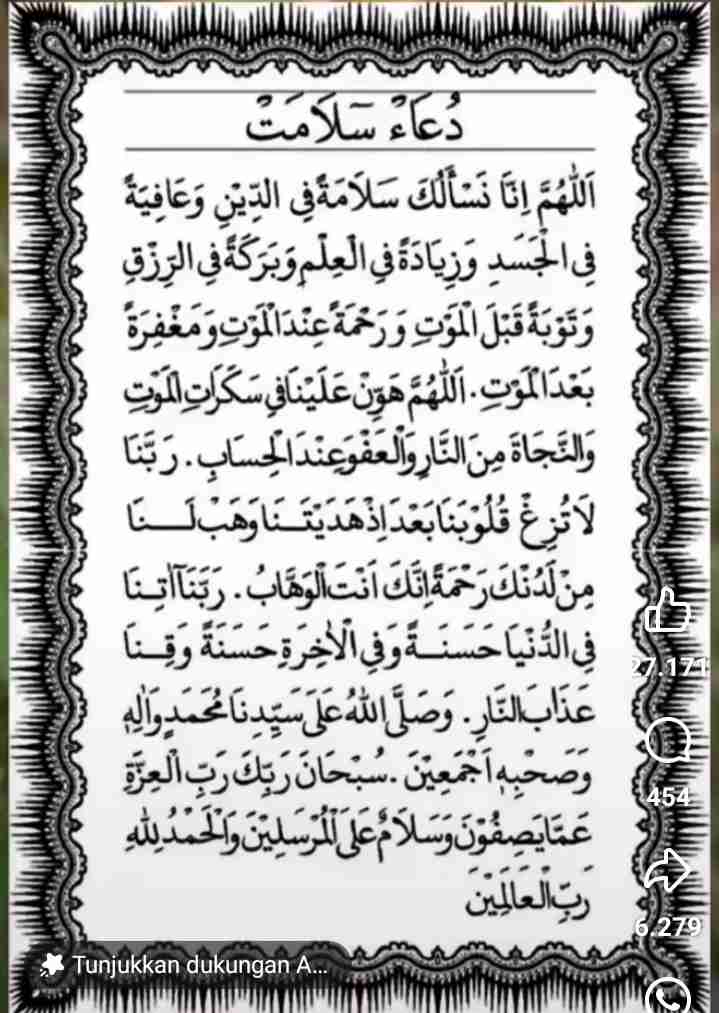 دُعَاءْ سَلَامَتْ
اَللّٰهُمَّ اِنَّا نَسْأَلُكَ سَلَامَةً فِى الدِّيْنِ وَعَافِيَةً
فِى الْجَسَدِ وَزِيَادَةً فِى الْعِلْمِ وَبَرَكَةً فِى الرِّزْقِ
وَتَوْبَةً قَبْلَ الْمَوْتِ وَرَحْمَةً عِنْدَ الْمَوْتِ وَمَغْفِرَةً
بَعْدَ الْمَوْتِ. اَللّٰهُمَّ هَوِّنْ عَلَيْنَا فِى سَكَرَاتِ الْمَوْتِ
وَالنَّجَاةَ مِنَ النَّارِ وَالْعَفْوَ عِنْدَ الْحِسَابِ. رَبَّنَا
لَا تُزِغْ قُلُوْبَنَا بَعْدَ اِذْ هَدَيْتَنَا وَهَبْ لَنَا
مِنْ لَدُنْكَ رَحْمَةً اِنَّكَ اَنْتَ الْوَهَّابُ. رَبَّنَا اٰتِنَا
فِى الدُّنْيَا حَسَنَةً وَفِى الْاٰخِرَةِ حَسَنَةً وَقِنَا
عَذَابَ النَّارِ. وَصَلَّى اللهُ عَلَى سَيِّدِنَا مُحَمَّدٍ وَاٰلِهِ
وَصَحْبِهِ اَجْمَعِيْنَ. سُبْحَانَ رَبِّكَ رَبِّ الْعِزَّةِ
عَمَّا يَصِفُوْنَ وَسَلَامٌ عَلَى الْمُرْسَلِيْنَ وَالْحَمْدُ لِلّٰهِ
رَبِّ الْعَالَمِيْنَ
27.171
454
6.279
Tunjukkan dukungan A...